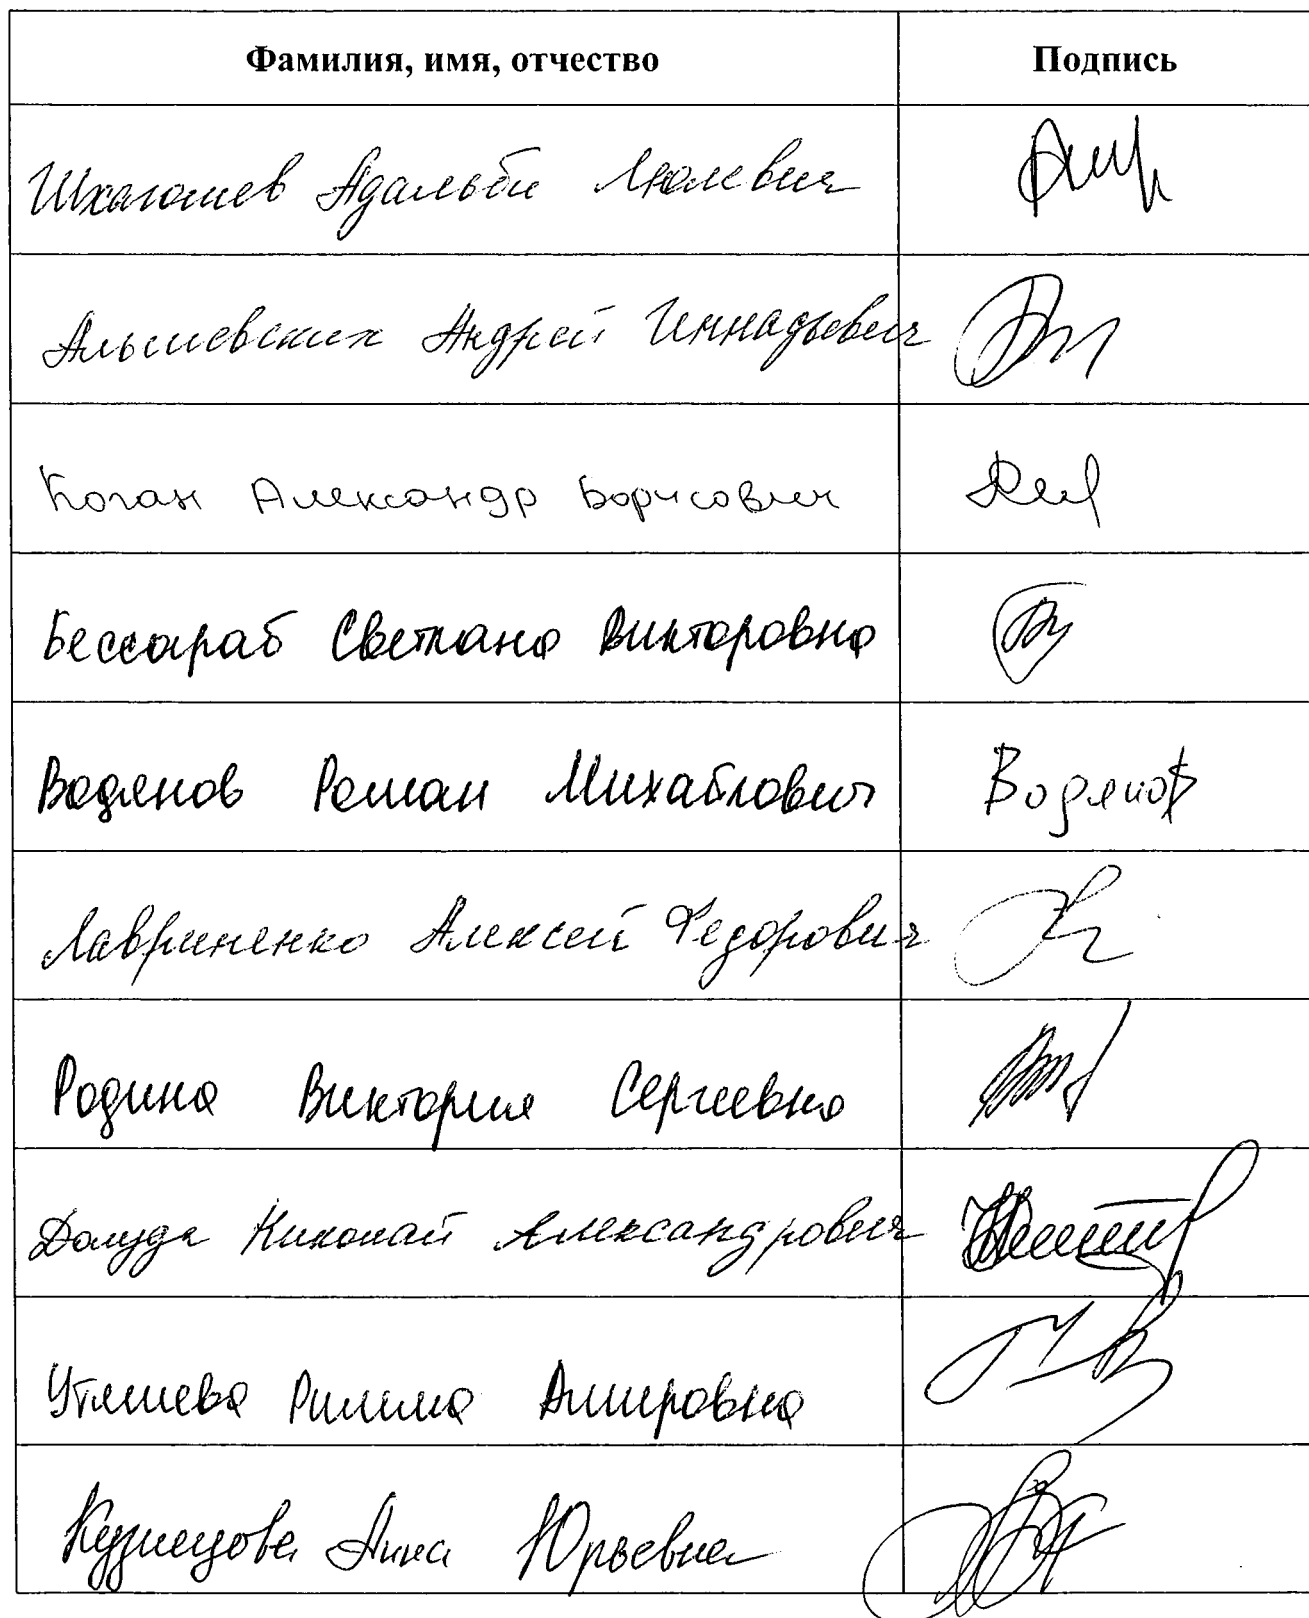 Фамилия, имя, отчество Подпись
Шхагошев Адальби Люлевич
Альшевских Андрей Геннадьевич
Коган Александр Борисович
Бессараб Светлана Викторовна
Водянов Роман Михайлович Водянов
Лавриненко Алексей Федорович
Родина Виктория Сергеевна
Долуда Николай Александрович
Утяшева Римма Амировна
Кузнецова Анна Юрьевна